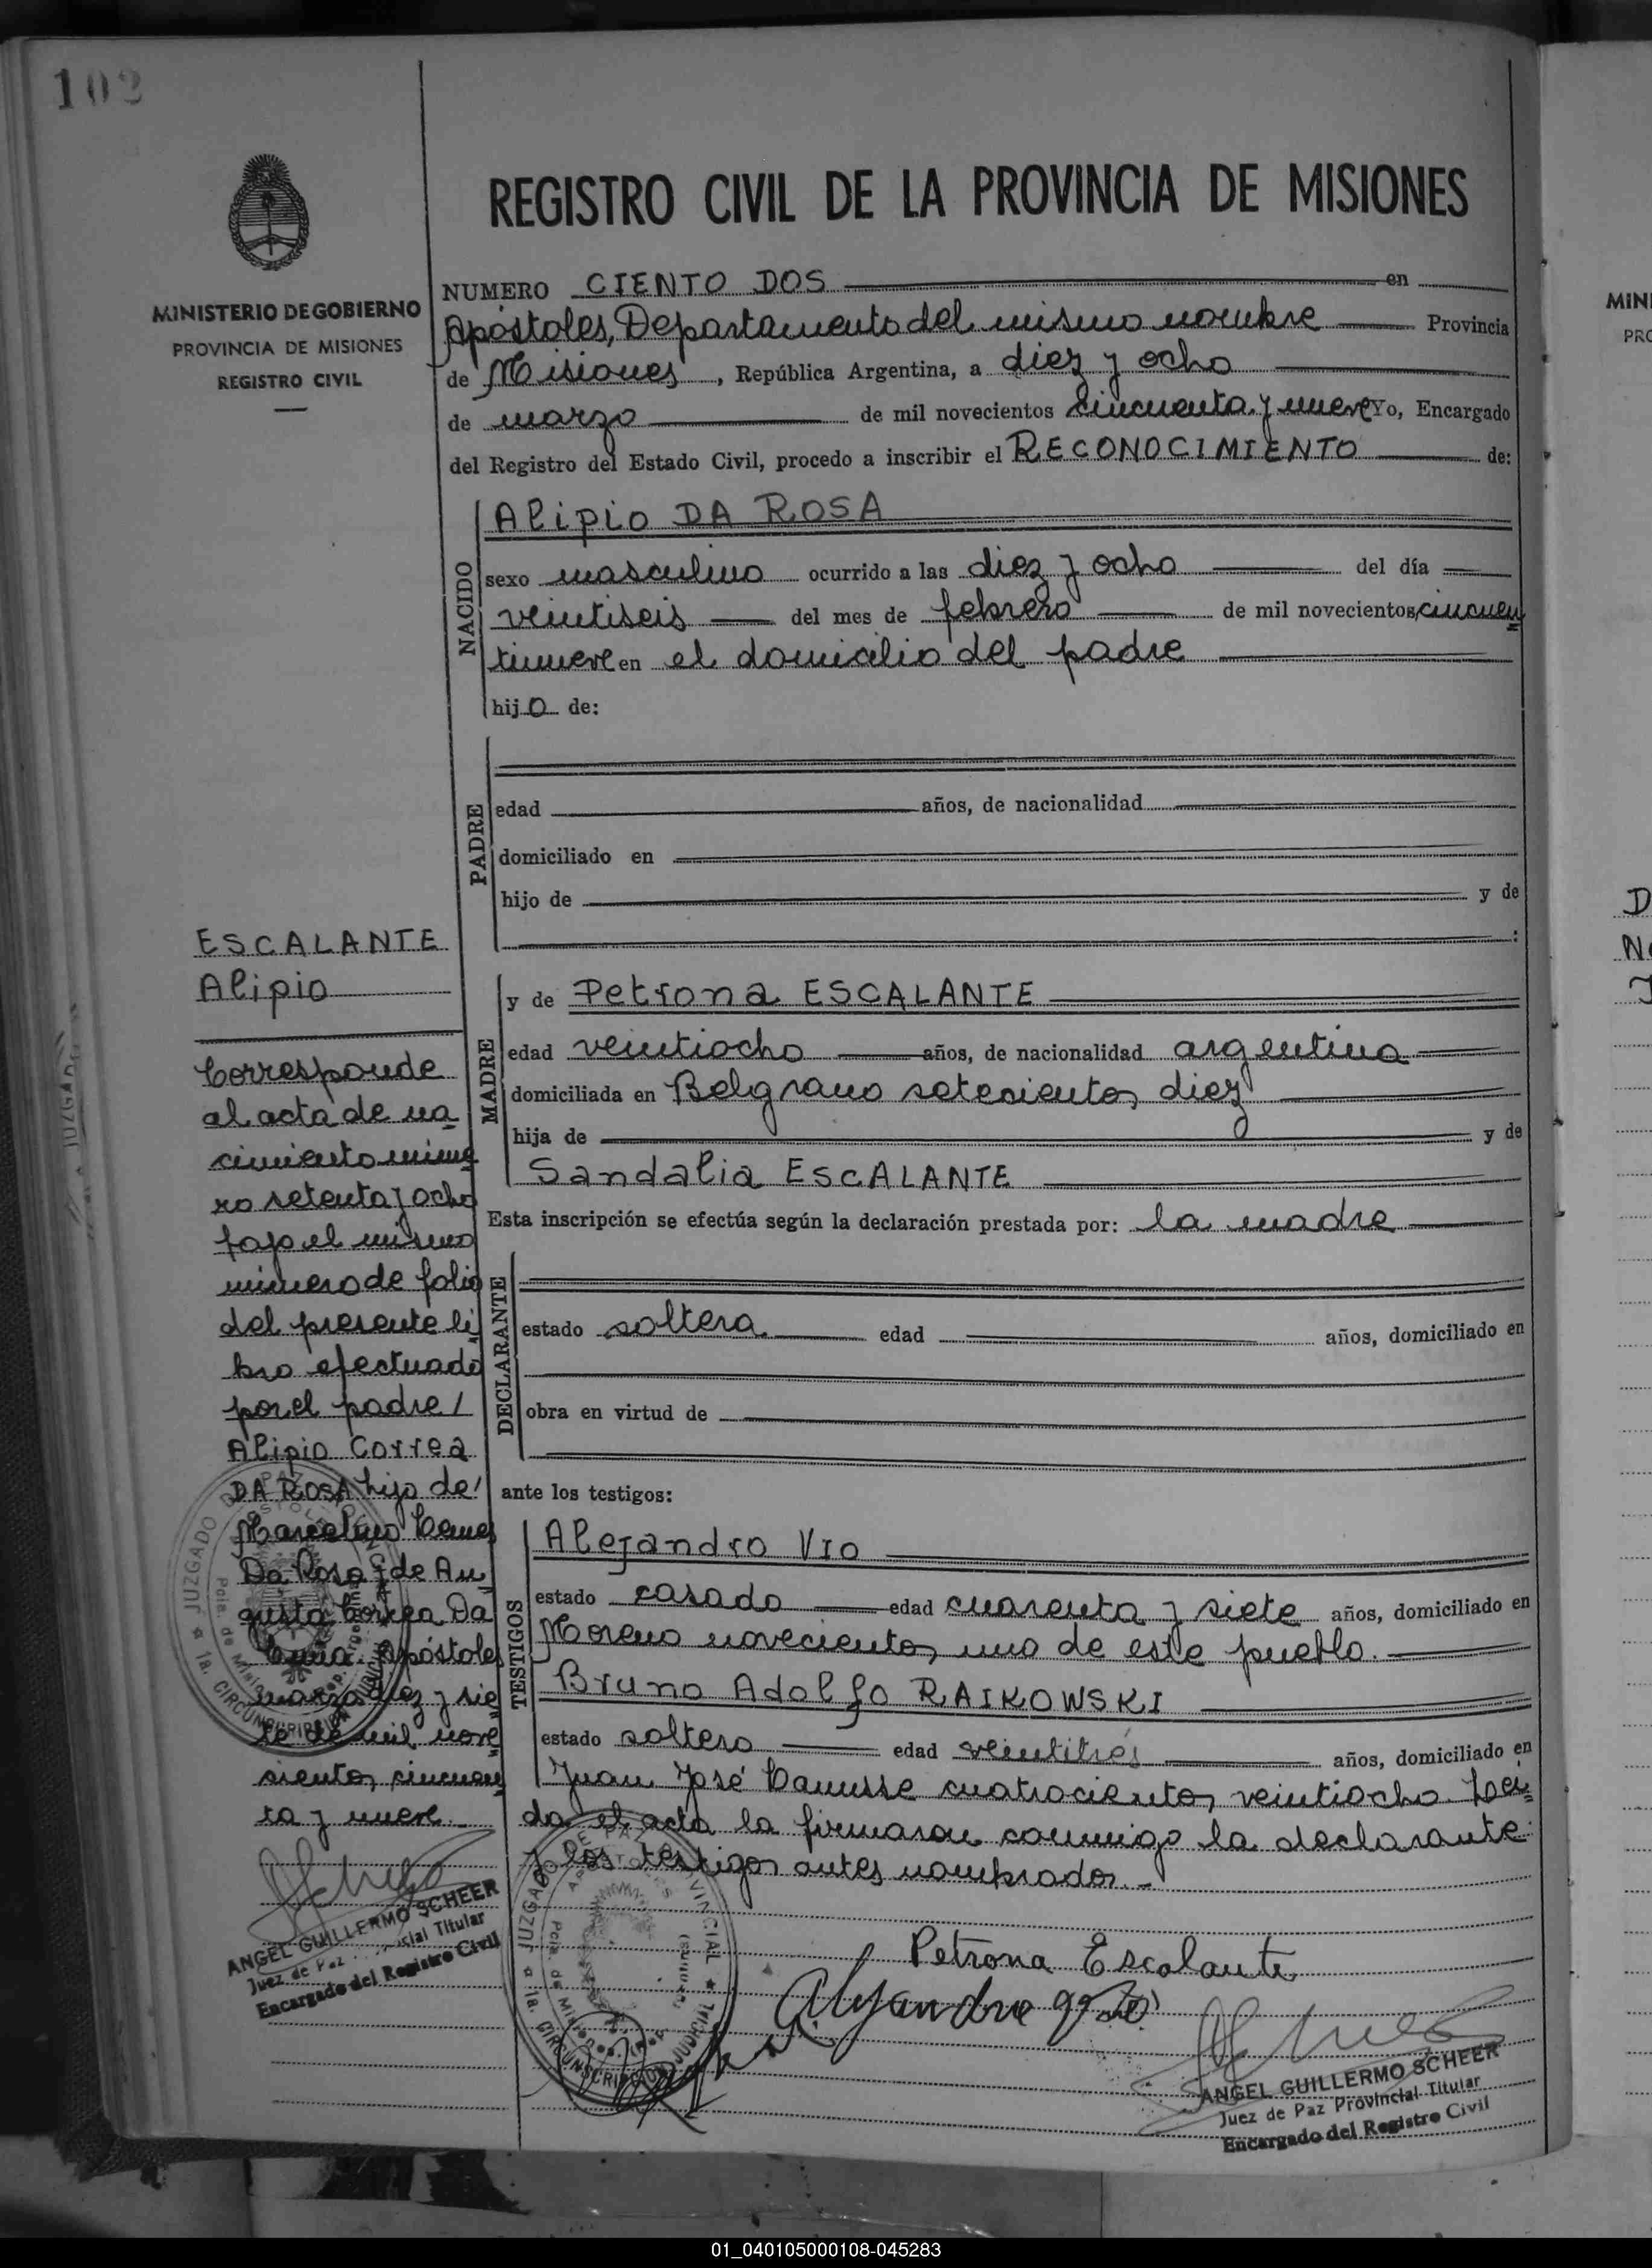 102
MINISTERIO DE GOBIERNO
PROVINCIA DE MISIONES
REGISTRO CIVIL
REGISTRO CIVIL DE LA PROVINCIA DE MISIONES
NUMERO CIENTO DOS en
Apóstoles, Departamento del mismo nombre Provincia
de Misiones, República Argentina, a diez y ocho
de marzo de mil novecientos cincuenta y nueve Yo, Encargado
del Registro del Estado Civil, procedo a inscribir el RECONOCIMIENTO de:
NACIDO
Alipio DA ROSA
sexo masculino ocurrido a las diez y ocho del día
veintiseis del mes de febrero de mil novecientos cincuen
tinueve en el domicilio del padre
hijo de:
PADRE
edad años, de nacionalidad
domiciliado en
hijo de y de
:
MADRE
y de Petrona ESCALANTE
edad veintiocho años, de nacionalidad argentina
domiciliada en Belgrano setesientos diez
hija de y de
Sandalia ESCALANTE
Esta inscripción se efectúa según la declaración prestada por: la madre
DECLARANTE
estado soltera edad años, domiciliado en
obra en virtud de
ante los testigos:
TESTIGOS
Alejandro Vio
estado casado edad cuarenta y siete años, domiciliado en
Moreno novecientos uno de este pueblo.
Bruno Adolfo RAIKOWSKI
estado soltero edad veintitrés años, domiciliado en
Juan José Canusse cuatrocientos veintiocho. Leí
da el acta la firmaron conmigo la declarante
y los testigos antes nombrados.-
Petrona Escalante
Alejandro
ANGEL GUILLERMO SCHEER
Juez de Paz Provincial Titular
Encargado del Registro Civil
ESCALANTE
Alipio
Corresponde
al acta de na
cimiento núme
ro setenta y ocho
bajo el mismo
número de folio
del presente li
bro efectuado
por el padre /
Alipio Correa
DA ROSA hijo de
Marcelino
Da Rosa y de Au
gusta Correa Da
Apóstoles
marzo diez y sie
te de mil nove
sientos cincuen
ta y nueve
ANGEL GUILLERMO SCHEER
Juez de Paz Titular
Encargado del Registro Civil
JUZGADO DE PAZ
APOSTOLES
Pcia. de Misiones
1a. CIRCUNSCRIPCION JUDICIAL
JUZGADO DE PAZ PROVINCIAL
APOSTOLES
Pcia. de Misiones
1a. CIRCUNSCRIPCION JUDICIAL
MINI
PRO
D
N
01_040105000108-045283